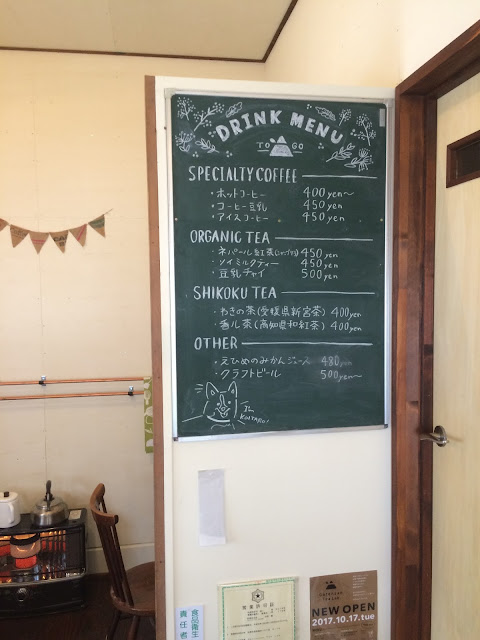 DRINK MENU
TO GO
SPECIALTY COFFEE
・ホットコーヒー 400yen〜
・コーヒー豆乳 450yen
・アイスコーヒー 450yen
ORGANIC TEA
・ネパール紅茶 450yen
・ソイミルクティー 450yen
・豆乳チャイ 500yen
SHIKOKU TEA
・わきの茶(愛媛県新宮茶) 400yen
茶(高知県和紅茶) 400yen
OTHER
・えひめのみかんジュース 480yen
・クラフトビール 500yen〜
食品衛生
責任者
NEW OPEN
2017.10.17.tue